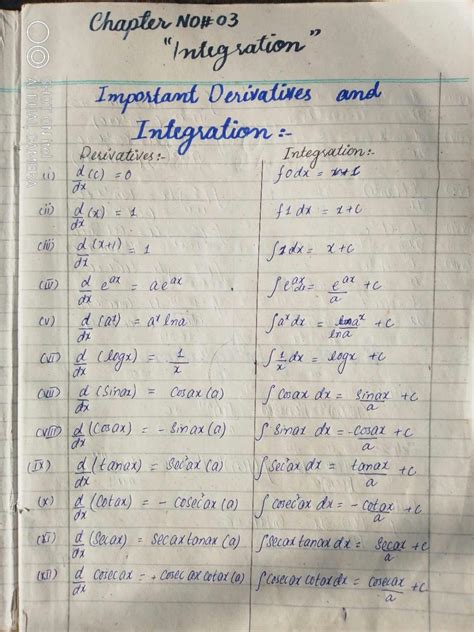 Chapter NO# 03
"Integration"
Important Derivatives and
Integration:-
Derivatives:- Integration:-
(i) d/dx (c) = 0 ∫0dx =
(ii) d/dx (x) = 1 ∫1dx = x+c
(iii) d/dx (x+1) = 1 ∫1dx = x+c
(iv) d/dx e^ax = ae^ax ∫e^ax dx = e^ax/a +c
(v) d/dx (a^x) = a^x lna ∫a^x dx = a^x/lna +c
(vi) d/dx (logx) = 1/x ∫1/x dx = logx +c
(vii) d/dx (Sinax) = Cosax(a) ∫Cosax dx = sinax/a +c
(viii) d/dx (Cosax) = - Sinax(a) ∫Sinax dx = -Cosax/a +c
(ix) d/dx (tanax) = Sec²ax(a) ∫Sec²ax dx = tanax/a +c
(x) d/dx (Cotax) = - Cosec²ax(a) ∫Cosec²ax dx = -Cotax/a +c
(xi) d/dx (Secax) = Secaxtanax(a) ∫Secaxtanax dx = Secax/a +c
(xii) d/dx Cosecax = Cosecaxcotax(a) ∫Cosecax Cotax dx = Cosecax/a +c